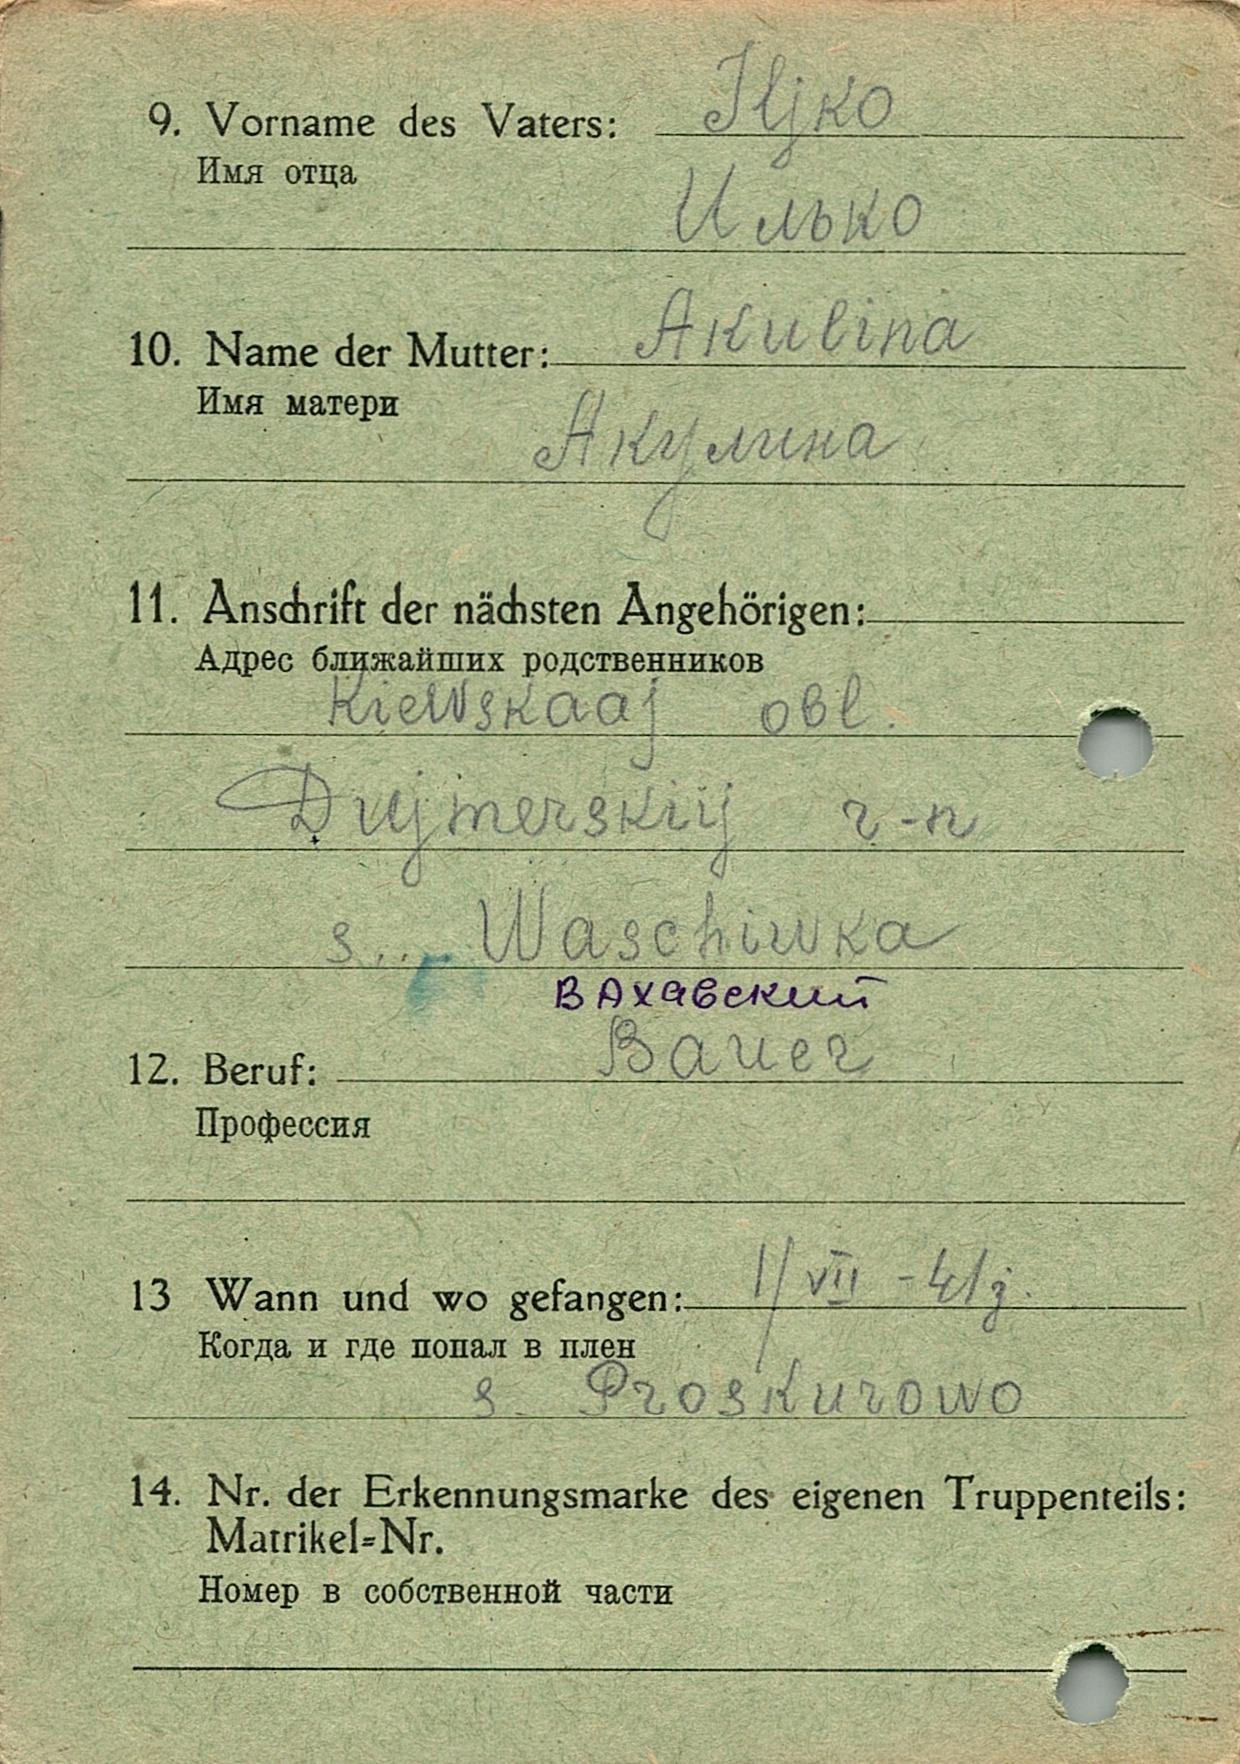 9. Vorname des Vaters: Iljko
Имя отца
Илько
10. Name der Mutter: Akulina
Имя матери
Акулина
11. Anschrift der nächsten Angehörigen:
Адрес ближайших родственников
Kiewskaaj obl.
Dujmerskij r-n
s... Waschiwka
ВАхавский
12. Beruf: Bauer
Профессия
13 Wann und wo gefangen: 1/VII - 41 j.
Когда и где попал в плен
s. Proskurowo
14. Nr. der Erkennungsmarke des eigenen Truppenteils:
Matrikel=Nr.
Номер в собственной части